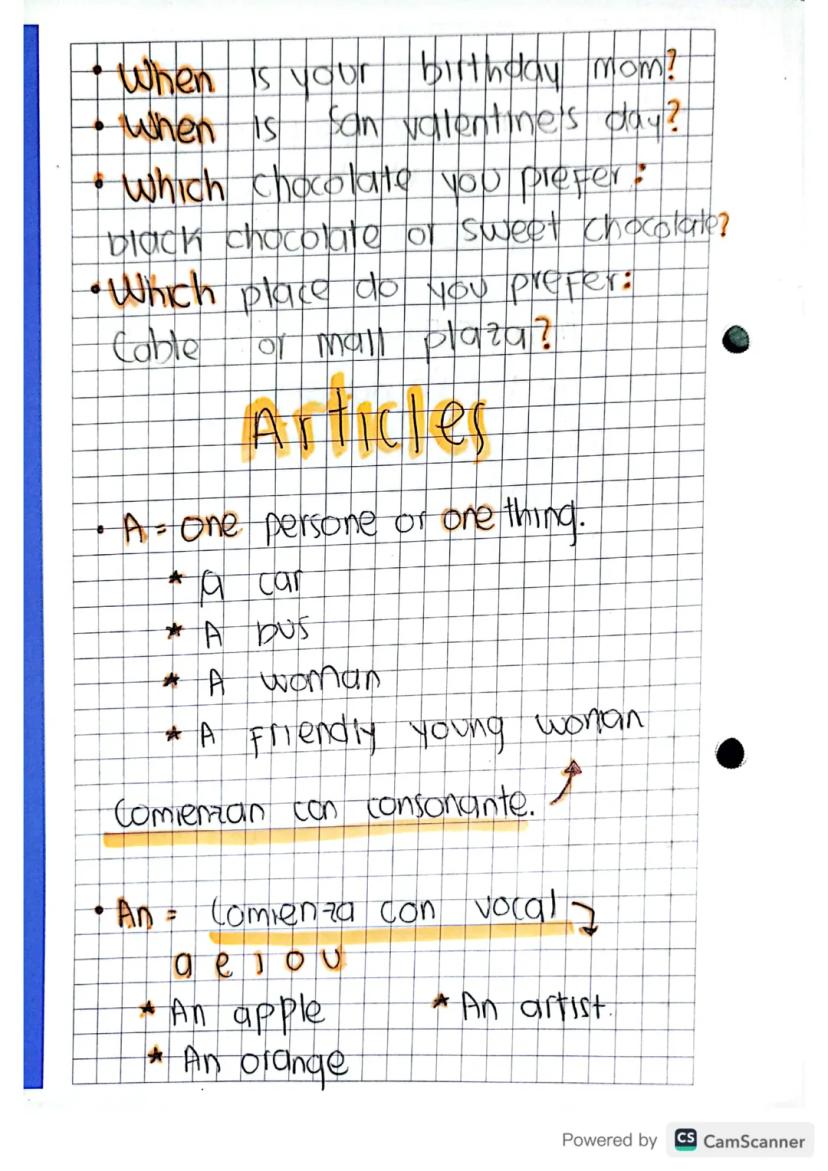 • When is your birthday mom?
• When is San valentine's day?
• Which chocolate you prefer:
black chocolate or sweet chocolate?
• Which place do you prefer:
Cable or mall plaza?
Articles
• A = one persone or one thing.
* A car
* A bus
* A woman
* A friendly young woman
Comienzan con consonante.
• An = Comienza con vocal
a e i o u
* An apple * An artist.
* An orange
Powered by CS CamScanner